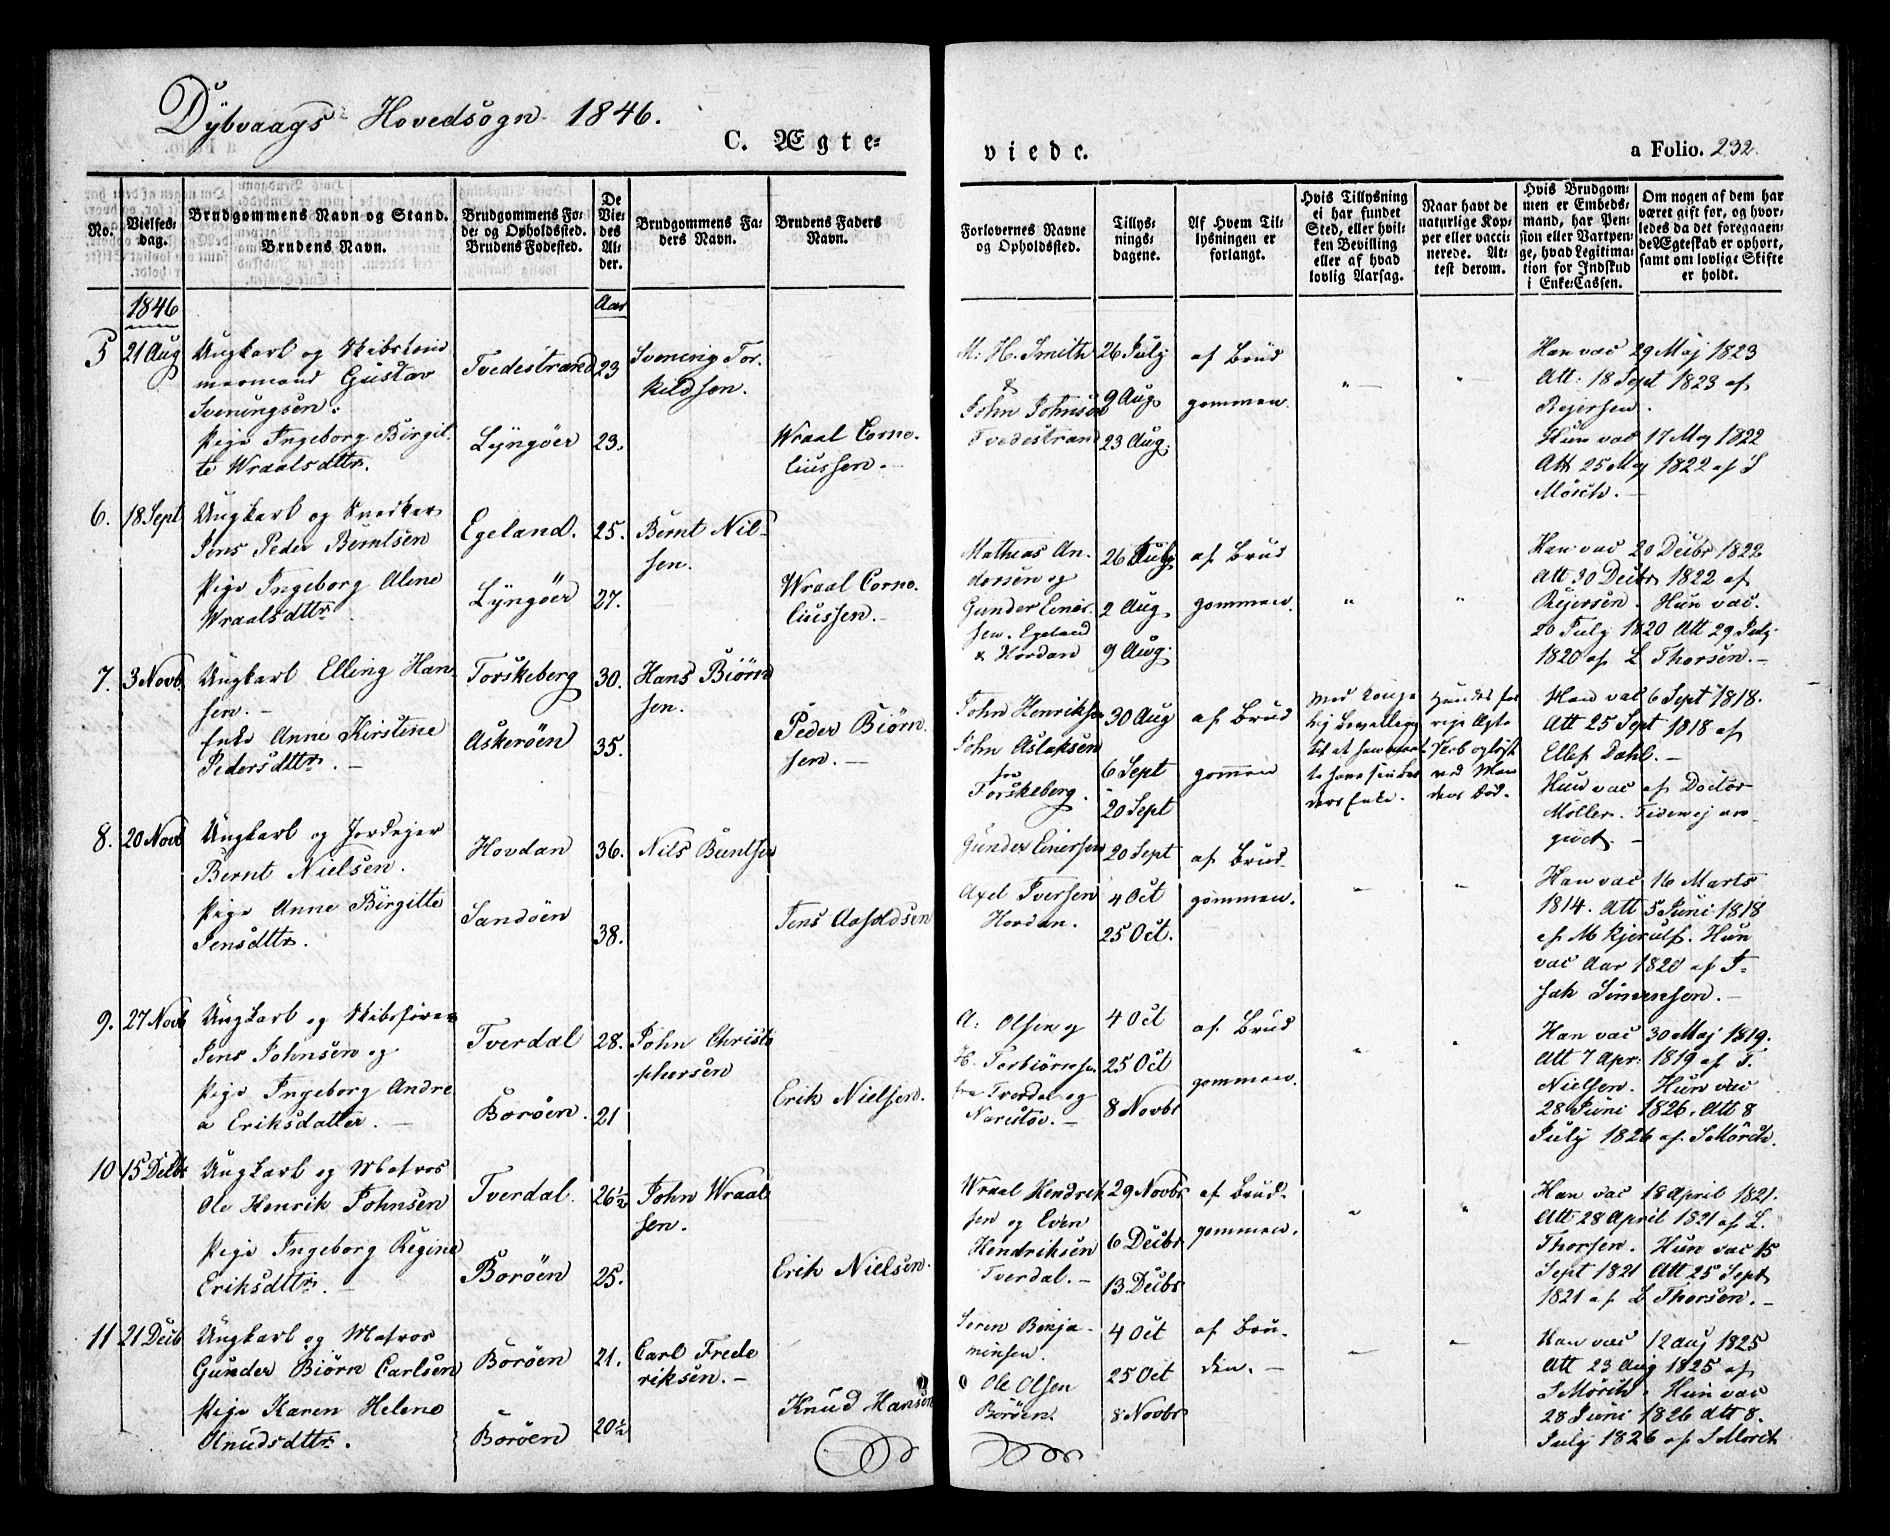 Dybvaags Hovedsogn 1846.
C. Ægte-
viede.
a Folio. 232.
No.
Vielses-
dag.
Brudgommens Navn og Stand.
Brudens Navn.
Brudgommens Fø-
de- og Opholdssted.
Brudens Fødested.
De
Vie-
des
Al-
der.
Brudgommens Fa-
ders Navn.
Brudens Faders
Navn.
Forlovernes Navne
og Opholdssted.
Tillys-
nings-
dagene.
Af Hvem Til-
lysningen er
forlangt.
Hvis Tillysning
ei har fundet
Sted, eller hvil-
ken Bevilling
eller af hvad
lovlig Aarsag.
Naar havt de
naturlige Kop-
per eller vacci-
nerede. At-
test derom.
Hvis Brudgom-
men er Embeds-
mand, har Pen-
sion eller Vartpen-
ge, hvad Legitima-
tion for Indskud
i Enke-Cassen.
Om nogen af dem har
været gift før, og hvor-
ledes da det foregaaen-
de Ægteskab er ophørt,
samt om lovlige Skifte
er holdt.
1846
Aar
5
21 Aug
Ungkarl og Skibstøm
mermand Gustav
Sveningsen.
Pige Ingeborg Birgit-
te Wraalsdttr.
Tvedestrand
Lyngöer
23
23.
Svening Tor-
kildsen.
Wraal Corne-
liussen.
M. H. Smith
&
John Johnsen
Tvedestrand
26 July
9 Aug.
23 Aug.
af Brud
gommen.
Han vac 29 Maj 1823
Att: 18 Sept 1823 af
Reiersen.
Hun vac 17 Maj 1822
Att 25 Maj 1822 af S
Mörch.
6.
18 Sept
Ungkarl og Snedker
Jens Peder Berntsen
Pige Ingeborg Alene
Wraalsdttr.
Egeland.
Lyngöer
25.
27.
Bernt Nil-
sen.
Wraal Corne-
liussen.
Mathias An-
dersen og
Gunder Einer-
sen. Egeland
& Hovdan
26 July
2 Aug.
9 Aug.
af Brud
gommen.
Han vac 20 Decbr 1822
Att 30 Decbr 1822 af
Reiersen. Hun vac.
20 July 1820 Att 29 July
1820 af L Thorsen.
7.
3 Novb.
Ungkarl Elling Han-
sen.
Enke Anne Kirstine
Pedersdttr.
Torskeberg
Askeröen
30.
35.
Hans Biörn
sen.
Peder Biörn-
sen.
John Henriksen
John Aslaksen
fra
Torskeberg.
30 Aug
6 Sept
20 Sept
af Brud
gommen
Med Konge
lig Bevilling
til at
ders Enke.
Hendes for
rige Ægte
ved Man
dens Död.
Han vac 6 Sept 1818.
Att 25 Sept 1818 af
Ellef Dahl.
Hun vac af Doctor
Möller. Tiden ej an-
givet.
8.
20 Novb
Ungkarl og Jordejer
Bernt Nielsen.
Pige Anne Birgitte
Jensdttr.
Hovdan
Sandöen
36.
38.
Nils Berntsen
Jens Aasoldsen
Gunder Einersen
Axel Iversen
Hovdan.
20 Sept
4 Oct
25 Oct.
af Brud-
gommen.
Han vac. 16 Marts
1814. Att 5 Juni 1818
af M Kjerulf. Hun
vac Aar 1820 af I-
sak Simensen.
9.
27 Novb
Ungkarl og Skibsfører
Jens Johnsen og
Pige Ingeborg Andre
a Eriksdatter.
Tverdal
Boröen.
28.
21
John Christo
phersen
Erik Nielsen.
A. Olsen og
H. Torbiörnsen
fra Tverdal og
Narestöe.
4 Oct
25 Oct
8 Novbr
af Brud
gommen.
Han vac 30 Maj 1819.
Att 7 Apr. 1819 af T.
Nielsen. Hun vac
28 Juni 1826. Att 8
July 1826 af S Mörch.
10
15 Decbr
Ungkarl og Matros
Ole Henrik Johnsen
Pige Ingeborg Regine
Eriksdttr.
Tverdal.
Boröen
26½
25.
John Wraal
sen.
Erik Nielsen.
Wraal Hendrik
sen og Even
Hendriksen
Tverdal.
29 Novbr
6 Decbr
13 Decbr
af Brud-
gommen.
Han vac 18 April 1821.
Att 28 April 1821 af L.
Thorsen. Hun vac 15
Sept 1821 Att 25 Sept
1821 af L Thorsen.
11
21 Decb
Ungkarl og Matros
Gunder Biörn Carlsen
Pige Karen Helene
Knudsdttr.
Boröen
Boröen
21.
20½
Carl Frede
riksen.
Knud Hansen
Soren Benja-
minsen.
Ole Olsen
Boröen.
4 Oct
25 Oct
8 Novbr
af Bru-
den.
Han vac 12 Aug 1825
Att 23 Aug 1825 af
S Mörch. Hun vac
28 Juni 1826 Att 8.
July 1826 af S Mörch